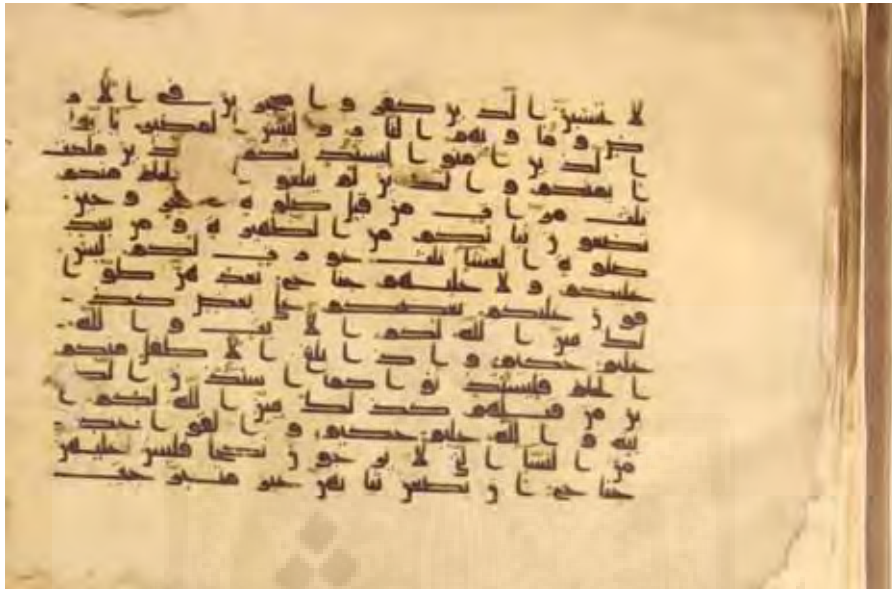 لا تحسبن الذين كفروا معجزين في الا
رض وماويهم النار ولبئس المصير يايها
الذين امنوا ليستذنكم الذين ملكت
ايمنكم والذين لم يبلغوا الحلم منكم
ثلث مرت من قبل صلوة الفجر وحين
تضعون ثيابكم من الظهيرة ومن بعد
صلوة العشا ثلث عورت لكم ليس
عليكم ولا عليهم جناح بعدهن طوا
فون عليكم بعضكم على بعض كذ
لك يبين الله لكم الايت والله
عليم حكيم واذا بلغ الاطفل منكم
الحلم فليستذنوا كما استذن الذ
ين من قبلهم كذلك يبين الله لكم ا
يته والله عليم حكيم والقوعد
من النسا التي لا يرجون نكاحا فليس عليهن
جناح ان يضعن ثيابهن غير متبرجت